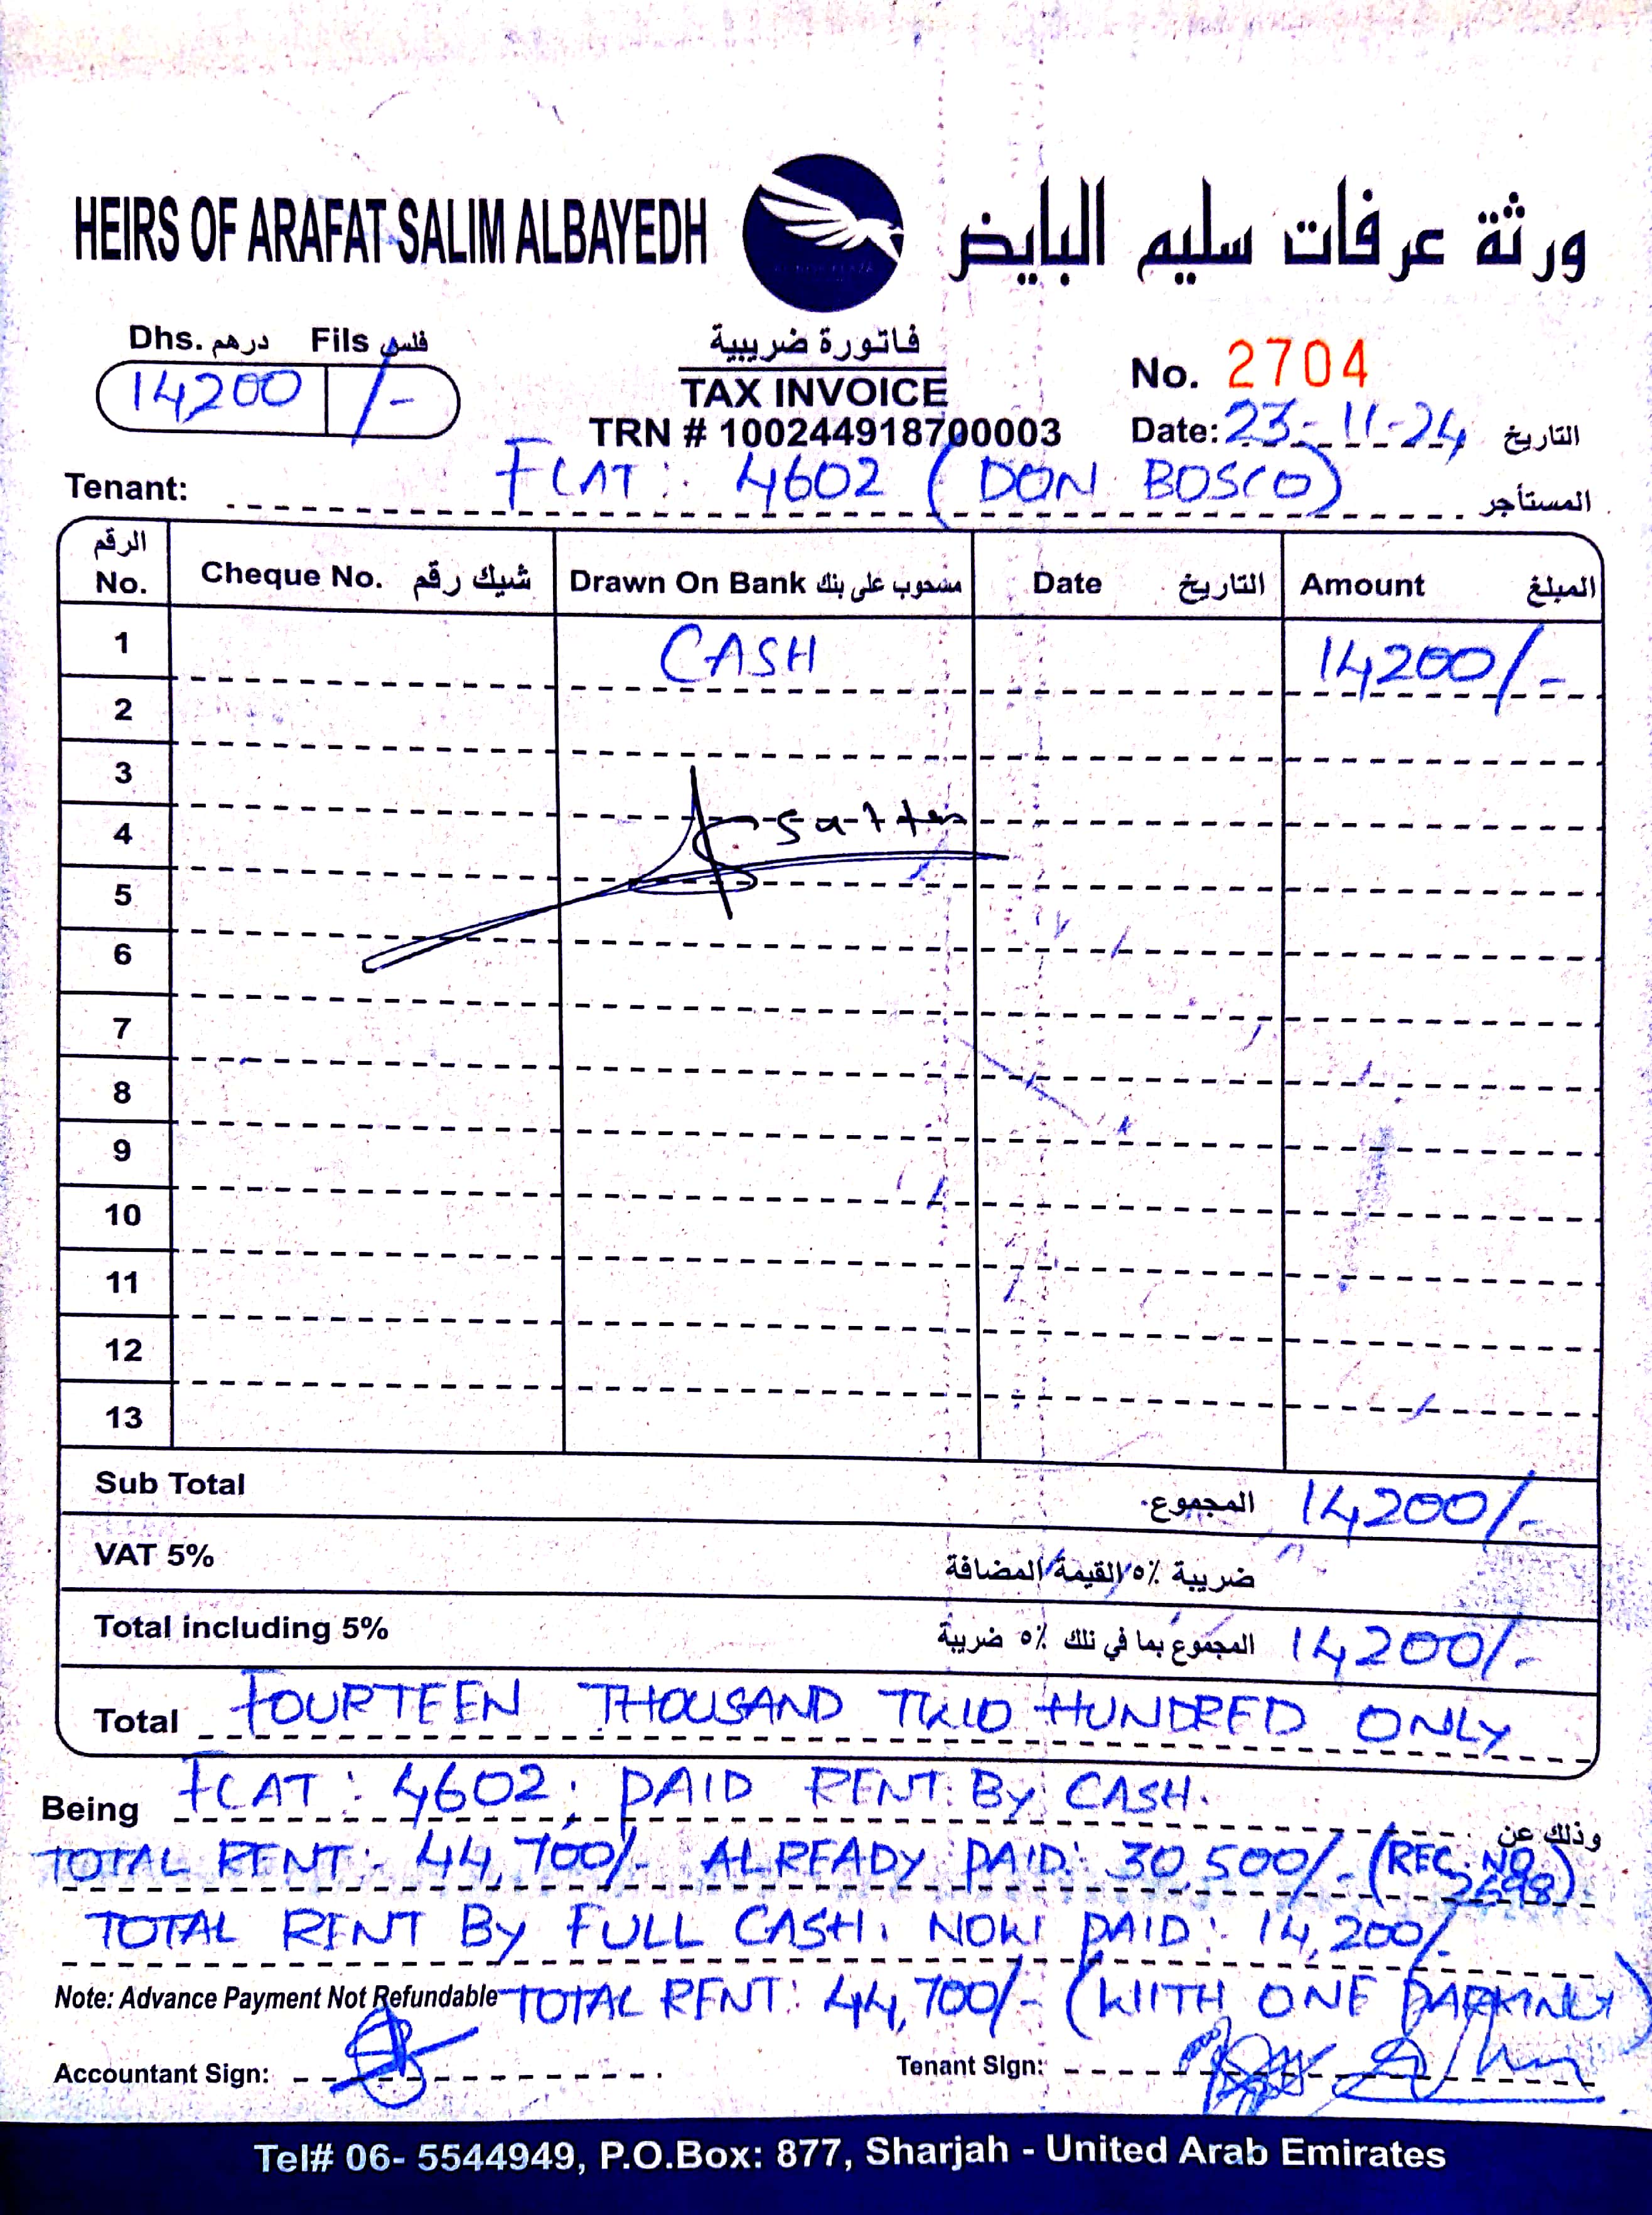 HEIRS OF ARAFAT SALIM ALBAYEDH ورثة عرفات سليم البايض
Dhs. درهم Fils فلس
14200 /-
فاتورة ضريبية
TAX INVOICE
TRN # 100244918700003
No. 2704
Date: 23-11-24 التاريخ
Tenant: FLAT: 4602 (DON BOSCO) المستأجر
الرقم No. Cheque No. شيك رقم Drawn On Bank مسحوب على بنك Date التاريخ Amount المبلغ
1 CASH 14200/-
2
3
4
5
6
7
8
9
10
11
12
13
Sub Total المجموع 14200/-
VAT 5% ضريبة ٥٪ القيمة المضافة
Total including 5% المجموع بما في تلك ٥٪ ضريبة 14200/-
Total FOURTEEN THOUSAND TWO HUNDRED ONLY
Being FLAT: 4602; PAID RENT BY CASH. وذلك عن
TOTAL RENT: 44,700/- ALREADY PAID: 30,500/- (REC.NO 2698)
TOTAL RENT BY FULL CASH. NOW PAID: 14,200/-
Note: Advance Payment Not Refundable TOTAL RENT: 44,700/- (WITH ONE PARKING)
Accountant Sign:
Tenant Sign:
Tel# 06- 5544949, P.O.Box: 877, Sharjah - United Arab Emirates